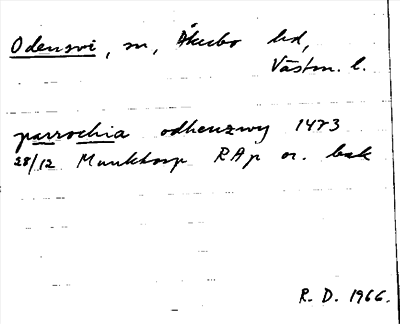 Odensvi, sn, Åkerbo hd,
Västm. l.
parrochia odhenzwy 1473
28/12 Munktorp RAp or. bak
R. D. 1966.